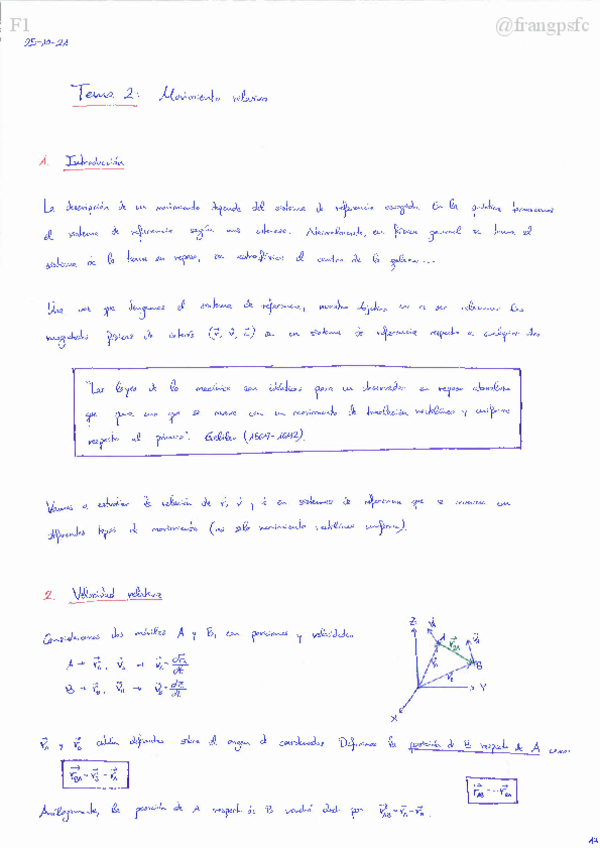 F1
@frangpsfc
Tema 2: Movimiento relativo
1. Introducción
La descripción de un movimiento depende del sistema de referencia escogido. En la práctica tomaremos
el sistema de referencia según nos interese. Normalmente, en física general se toma el
sistema de la tierra en reposo, en astrofísica el centro de la galaxia...
Una vez que tengamos el sistema de referencia, nuestro objetivo va a ser relacionar las
magnitudes físicas de interés (r⃗, v⃗, a⃗) en un sistema de referencia respecto a cualquier otro
"Las leyes de la mecánica son idénticas para un observador en reposo absoluto
que para uno que se mueve con un movimiento de translación rectilíneo y uniforme
respecto al primero". Galileo (1564-1642)
Vamos a estudiar la relación de r⃗, v⃗ y a⃗ en sistemas de referencia que se mueven con
diferentes tipos de movimiento (no solo movimiento rectilíneo uniforme).
2. Velocidad relativa
Consideremos dos móviles A y B, con posiciones y velocidades
Z
A
B
Y
X
r⃗A y r⃗B están definidos sobre el origen de coordenadas. Definimos la posición de B respecto de A como
r⃗BA = r⃗B - r⃗A
r⃗AB = -r⃗BA
Análogamente, la posición de A respecto de B vendrá dada por r⃗AB = r⃗A - r⃗B